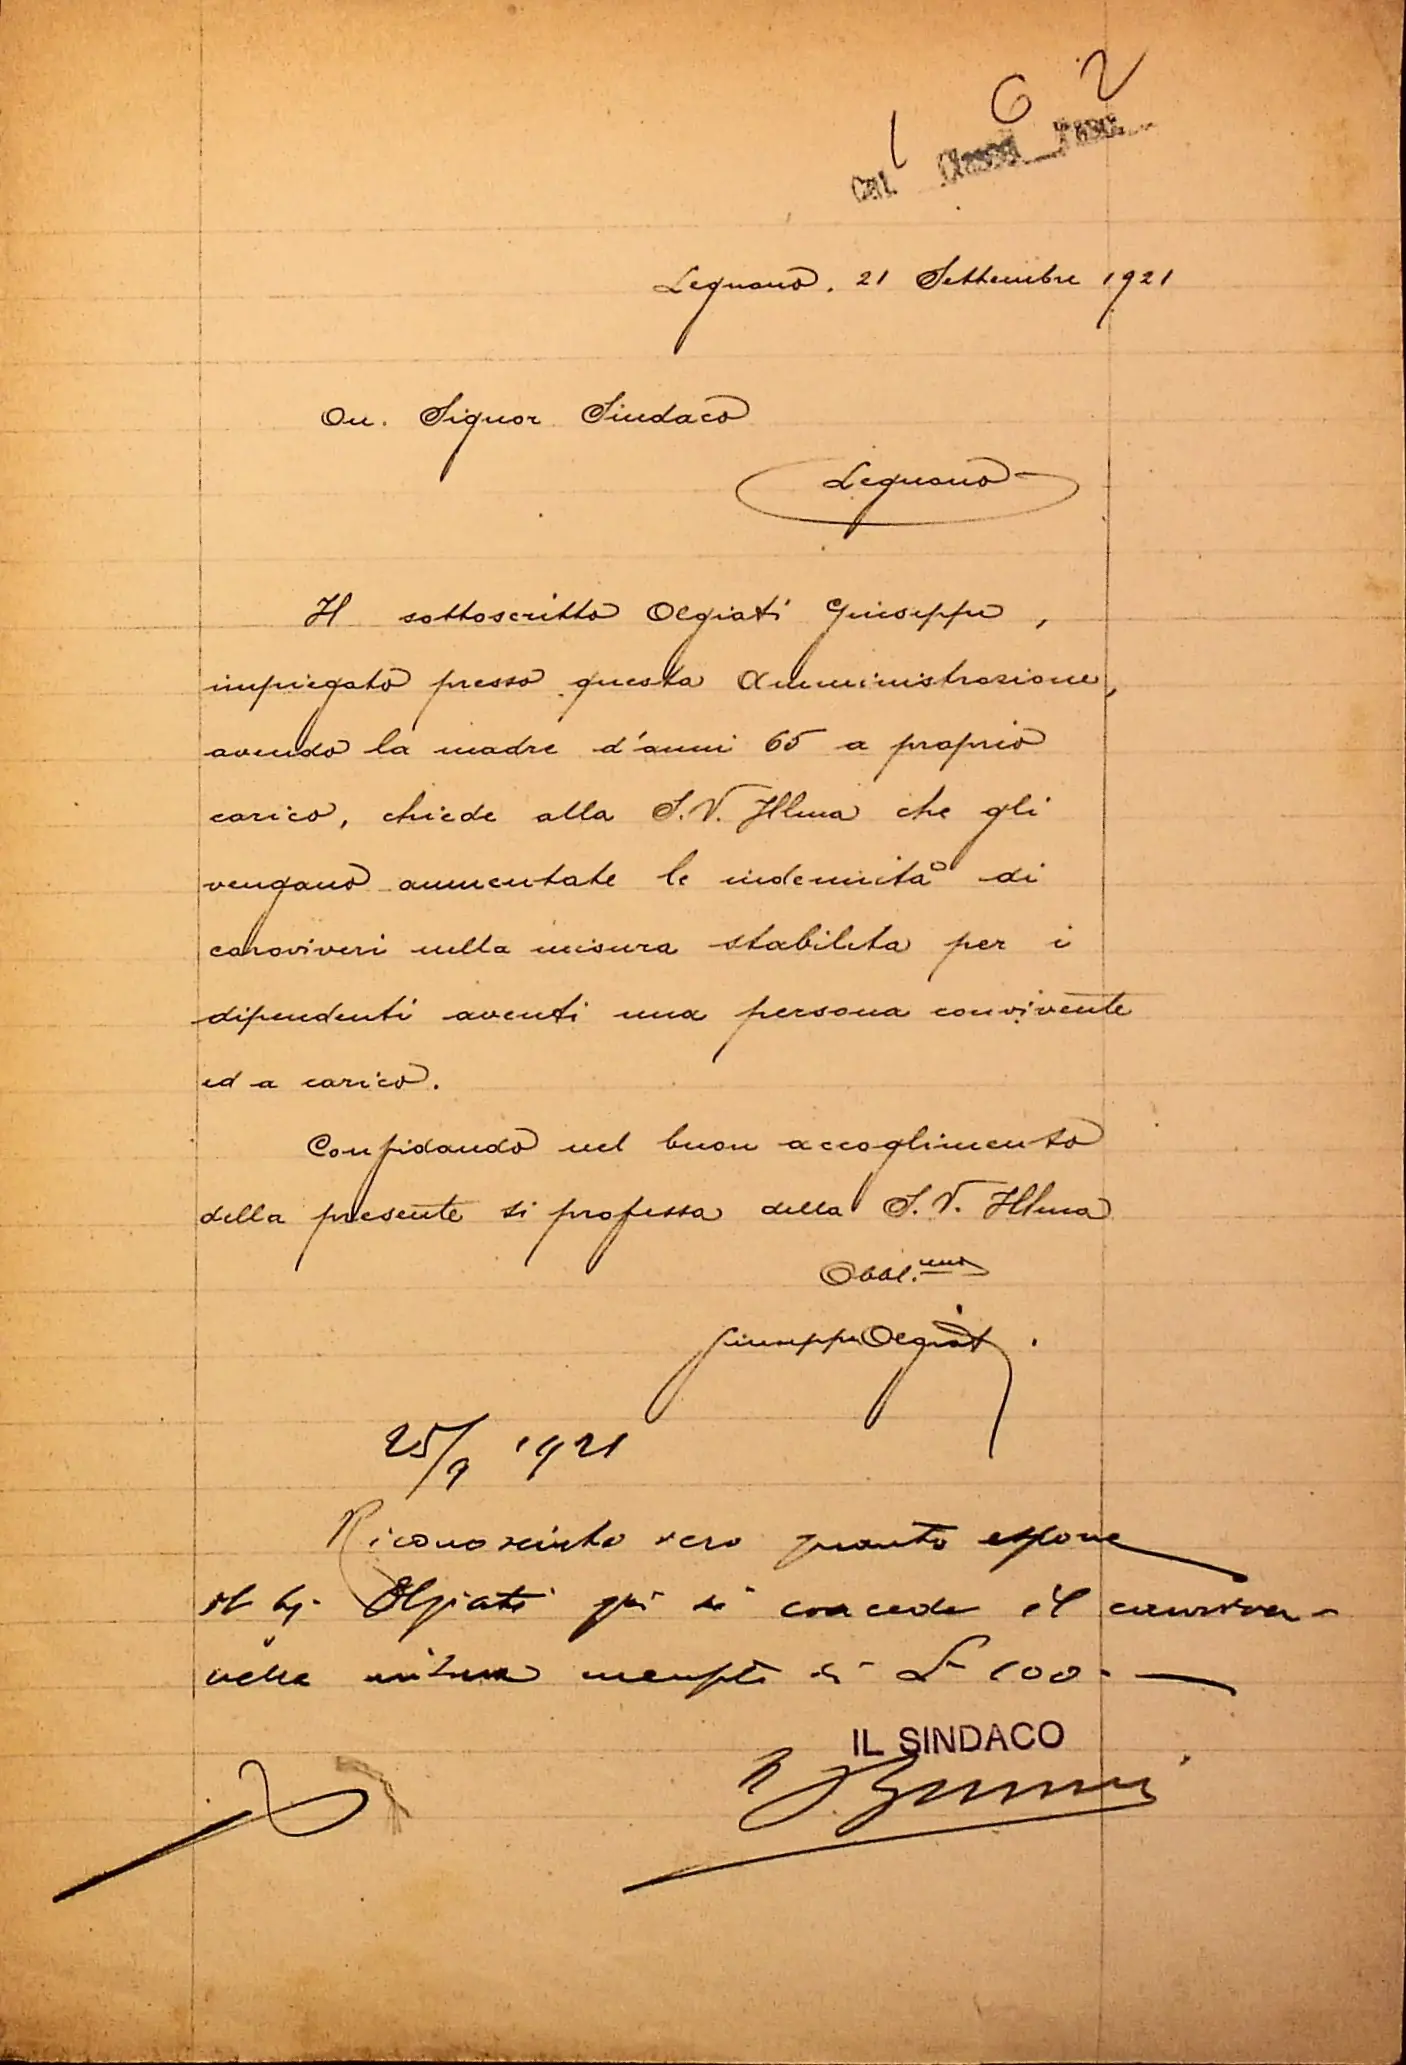 1 6 2
Cat. Classe Fasc.
Legnano. 21 Settembre 1921
On. Signor Sindaco
Legnano
Il sottoscritto Olgiati Giuseppe,
impiegato presso questa Amministrazione,
avendo la madre d'anni 65 a proprio
carico, chiede alla S.V. Illma che gli
vengano aumentate le indennità di
caroviveri nella misura stabilita per i
dipendenti aventi una persona convivente
ed a carico.
Confidando nel buon accoglimento
della presente si professa della S.V. Illma
Obbl.mo
Giuseppe Olgiati.
25/9 1921
Riconosciuto vero quanto espone
il Olgiati gli si concede il caroviveri
nella misura di L 100.-
IL SINDACO